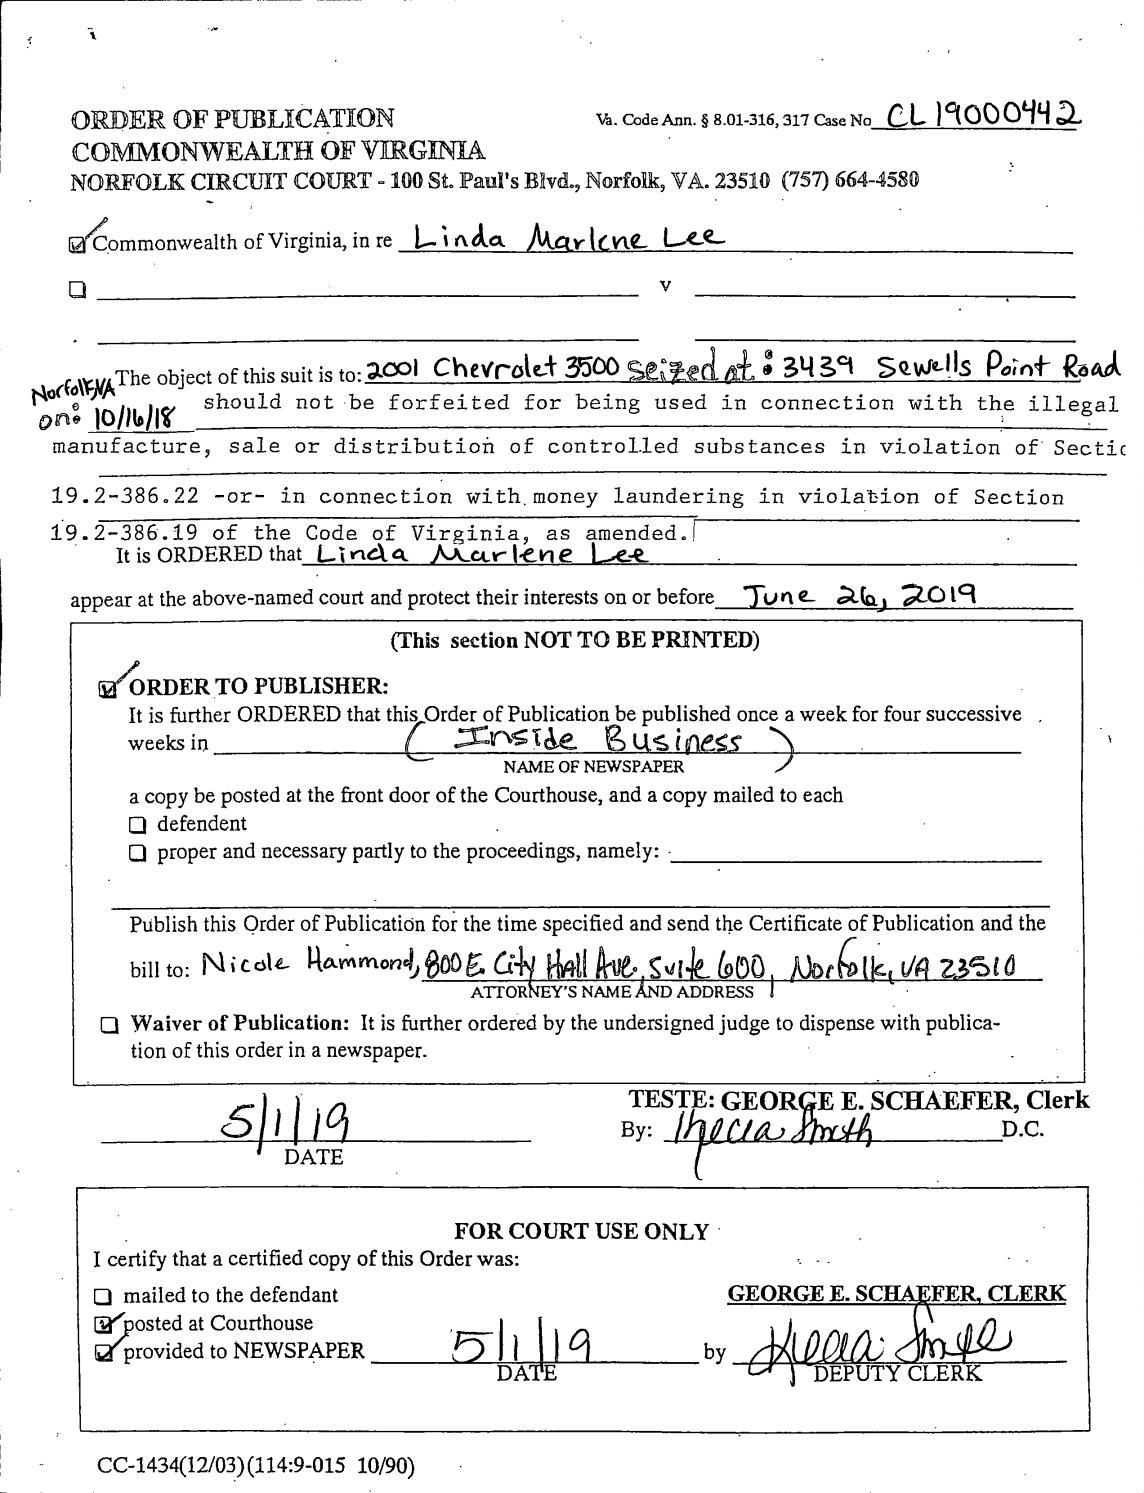 ORDER OF PUBLICATION
Va. Code Ann. § 8.01-316, 317 Case No CL19000442
COMMONWEALTH OF VIRGINIA
NORFOLK CIRCUIT COURT - 100 St. Paul's Blvd., Norfolk, VA. 23510 (757) 664-4580
☑ Commonwealth of Virginia, in re Linda Marlene Lee
☐ v
The object of this suit is to: 2001 Chevrolet 3500 seized at: 3439 Sewells Point Road
Norfolk, VA
on: 10/16/18 should not be forfeited for being used in connection with the illegal
manufacture, sale or distribution of controlled substances in violation of Sectic
19.2-386.22 -or- in connection with money laundering in violation of Section
19.2-386.19 of the Code of Virginia, as amended.
It is ORDERED that Linda Marlene Lee
appear at the above-named court and protect their interests on or before June 26, 2019
(This section NOT TO BE PRINTED)
☑ ORDER TO PUBLISHER:
It is further ORDERED that this Order of Publication be published once a week for four successive
weeks in (Inside Business)
NAME OF NEWSPAPER
a copy be posted at the front door of the Courthouse, and a copy mailed to each
☐ defendent
☐ proper and necessary partly to the proceedings, namely:
Publish this Order of Publication for the time specified and send the Certificate of Publication and the
bill to: Nicole Hammond, 800 E. City Hall Ave, Suite 600, Norfolk, VA 23510
ATTORNEY'S NAME AND ADDRESS
☐ Waiver of Publication: It is further ordered by the undersigned judge to dispense with publica-
tion of this order in a newspaper.
TESTE: GEORGE E. SCHAEFER, Clerk
5/1/19 By: Smith D.C.
DATE
FOR COURT USE ONLY
I certify that a certified copy of this Order was:
☐ mailed to the defendant
GEORGE E. SCHAEFER, CLERK
☑ posted at Courthouse
☑ provided to NEWSPAPER 5/1/19 by
DATE DEPUTY CLERK
CC-1434(12/03)(114:9-015 10/90)